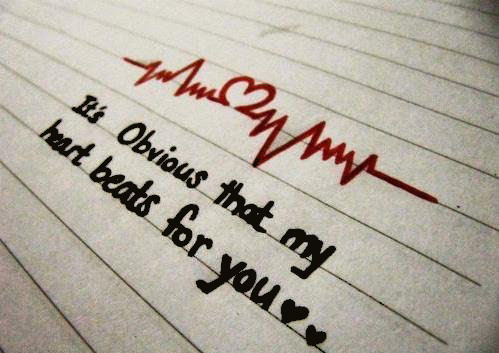 It's Obvious that my
heart beats for you♥♥